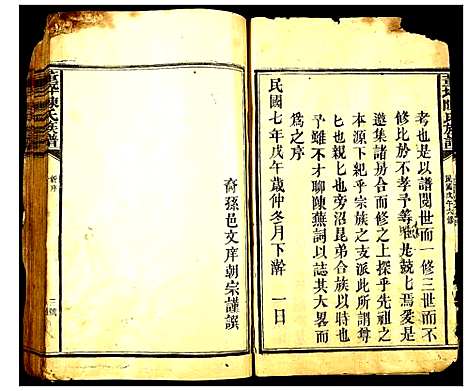 考也是以譜閱世而一修三世而不
修比於不孝予等是兢七焉爰是
邀集諸房合而修之上探乎先祖之
本源下紀乎宗族之支派此所謂尊
七也親七也旁沼昆弟合族以時也
予雖不才聊陳蕪詞以誌其大畧而
為之序
民國七年戊午歲仲冬月下澣 一日
裔孫邑文庠朝宗謹譔
陳氏族譜
新序
陳氏族譜
民國戊午六修